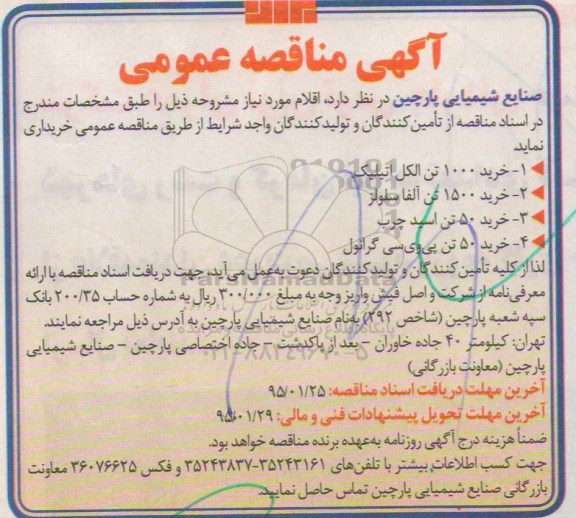 آگهی مناقصه عمومی
صنایع شیمیایی پارچین در نظر دارد، اقلام مورد نیاز مشروحه ذیل را طبق مشخصات مندرج
در اسناد مناقصه از تأمین‌کنندگان و تولیدکنندگان واجد شرایط از طریق مناقصه عمومی خریداری
نماید.
۱- خرید ۱۰۰۰ تن الکل اتیلیک
۲- خرید ۱۵۰۰ تن آلفا سلولز
۳- خرید ۵۰ تن اسید چرب
۴- خرید ۵۰ تن پی‌وی‌سی گرانول
لذا از کلیه تأمین‌کنندگان و تولیدکنندگان دعوت به‌عمل می‌آید، جهت دریافت اسناد مناقصه با ارائه
معرفی‌نامه از شرکت و اصل فیش واریز وجه به مبلغ ۳۰۰/۰۰۰ ریال به شماره حساب ۲۰۰/۳۵ بانک
سپه شعبه پارچین (شاخص ۲۹۲) به‌نام صنایع شیمیایی پارچین به آدرس ذیل مراجعه نمایند.
تهران: کیلومتر ۴۰ جاده خاوران - بعد از پاکدشت - جاده اختصاصی پارچین - صنایع شیمیایی
پارچین (معاونت بازرگانی)
آخرین مهلت دریافت اسناد مناقصه: ۹۵/۰۱/۲۵
آخرین مهلت تحویل پیشنهادات فنی و مالی: ۹۵/۰۱/۲۹
ضمناً هزینه درج آگهی روزنامه به‌عهده برنده مناقصه خواهد بود.
جهت کسب اطلاعات بیشتر با تلفن‌های ۳۵۲۴۳۱۶۱-۳۵۲۴۳۸۳۷ و فکس ۳۶۰۷۶۶۲۵ معاونت
بازرگانی صنایع شیمیایی پارچین تماس حاصل نمایید.
ParsNamadData